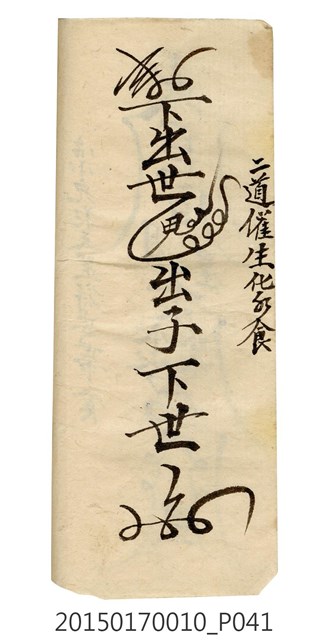 二道催生化水食
下出世鬼出子下世
20150170010_P041